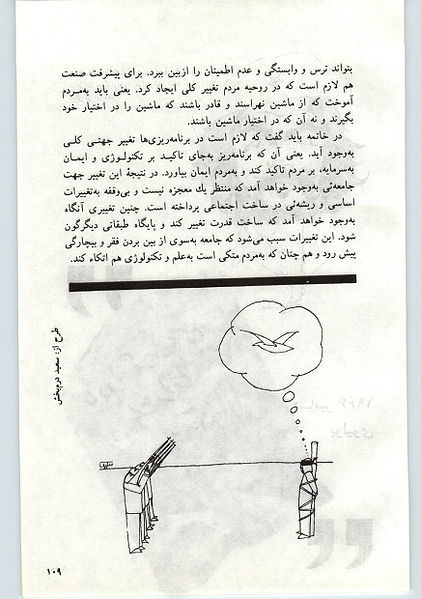 بتواند ترس و وابستگی و عدم اطمینان را ازبین ببرد. برای پیشرفت صنعت
هم لازم است که در روحیه مردم تغییر کلی ایجاد کرد. یعنی باید به‌مردم
آموخت که از ماشین نهراسند و قادر باشند که ماشین را در اختیار خود
بگیرند و نه آن که در اختیار ماشین باشند.
در خاتمه باید گفت که لازم است در برنامه‌ریزی‌ها تغییر جهتی کلی
به‌وجود آید. یعنی آن که برنامه‌ریز به‌جای تاکید بر تکنولوژی و ایمان
به‌سرمایه، بر مردم تاکید کند و به‌مردم ایمان بیاورد. در نتیجهٔ این تغییر جهت
جامعه‌ئی به‌وجود خواهد آمد که منتظر یك معجزه نیست و بی‌وقفه به‌تغییرات
اساسی و ریشه‌ئی در ساخت اجتماعی پرداخته است. چنین تغییری آنگاه
به‌وجود خواهد آمد که ساخت قدرت تغییر کند و پایگاه طبقاتی دیگرگون
شود. این تغییرات سبب می‌شود که جامعه به‌سوی از بین بردن فقر و بیچارگی
پیش رود و هم چنان که به‌مردم متکی است به‌علم و تکنولوژی هم اتکاء کند.
طرح از: سعید درم‌بخش
۱۰۹